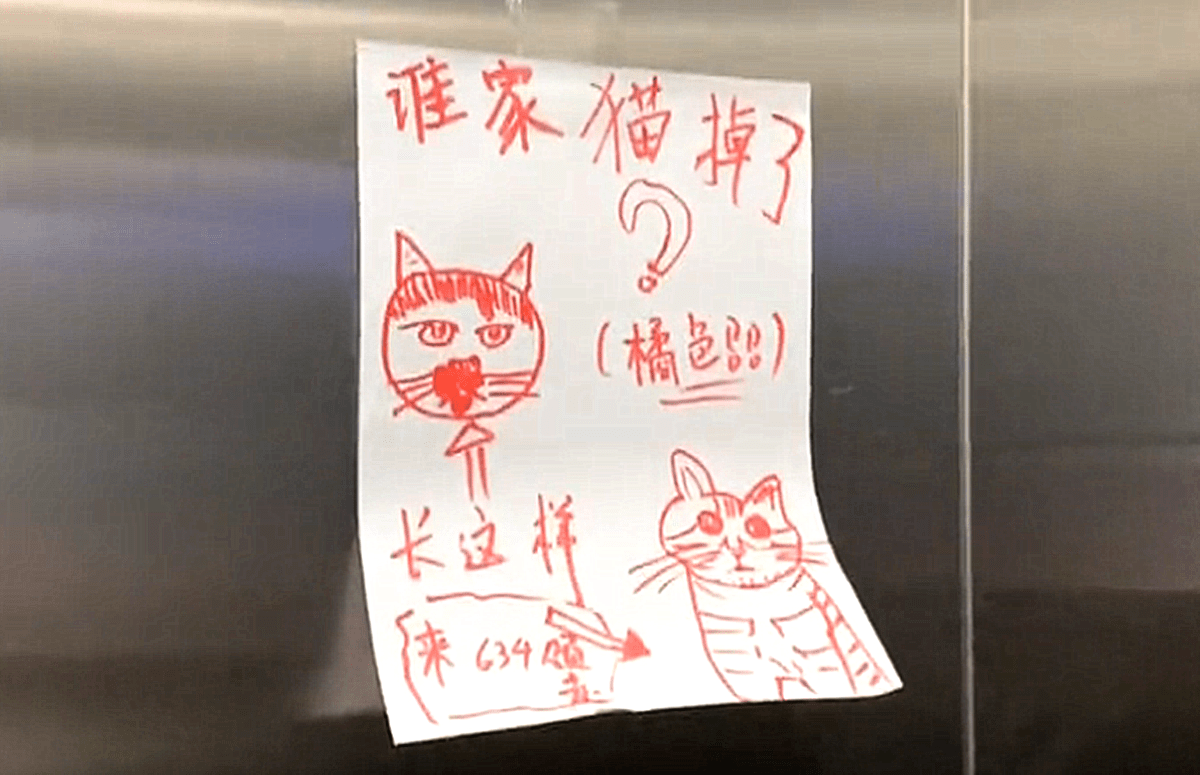 谁家猫掉了
?
(橘色!!)
长这样
来634